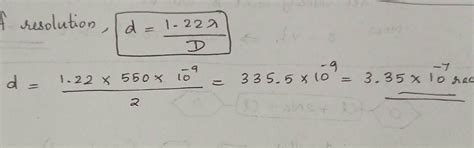 f resolution, d = 1.22λ / D
d = 1.22 × 550 × 10^-9 / 2 = 335.5 × 10^-9 = 3.35 × 10^-7 rad